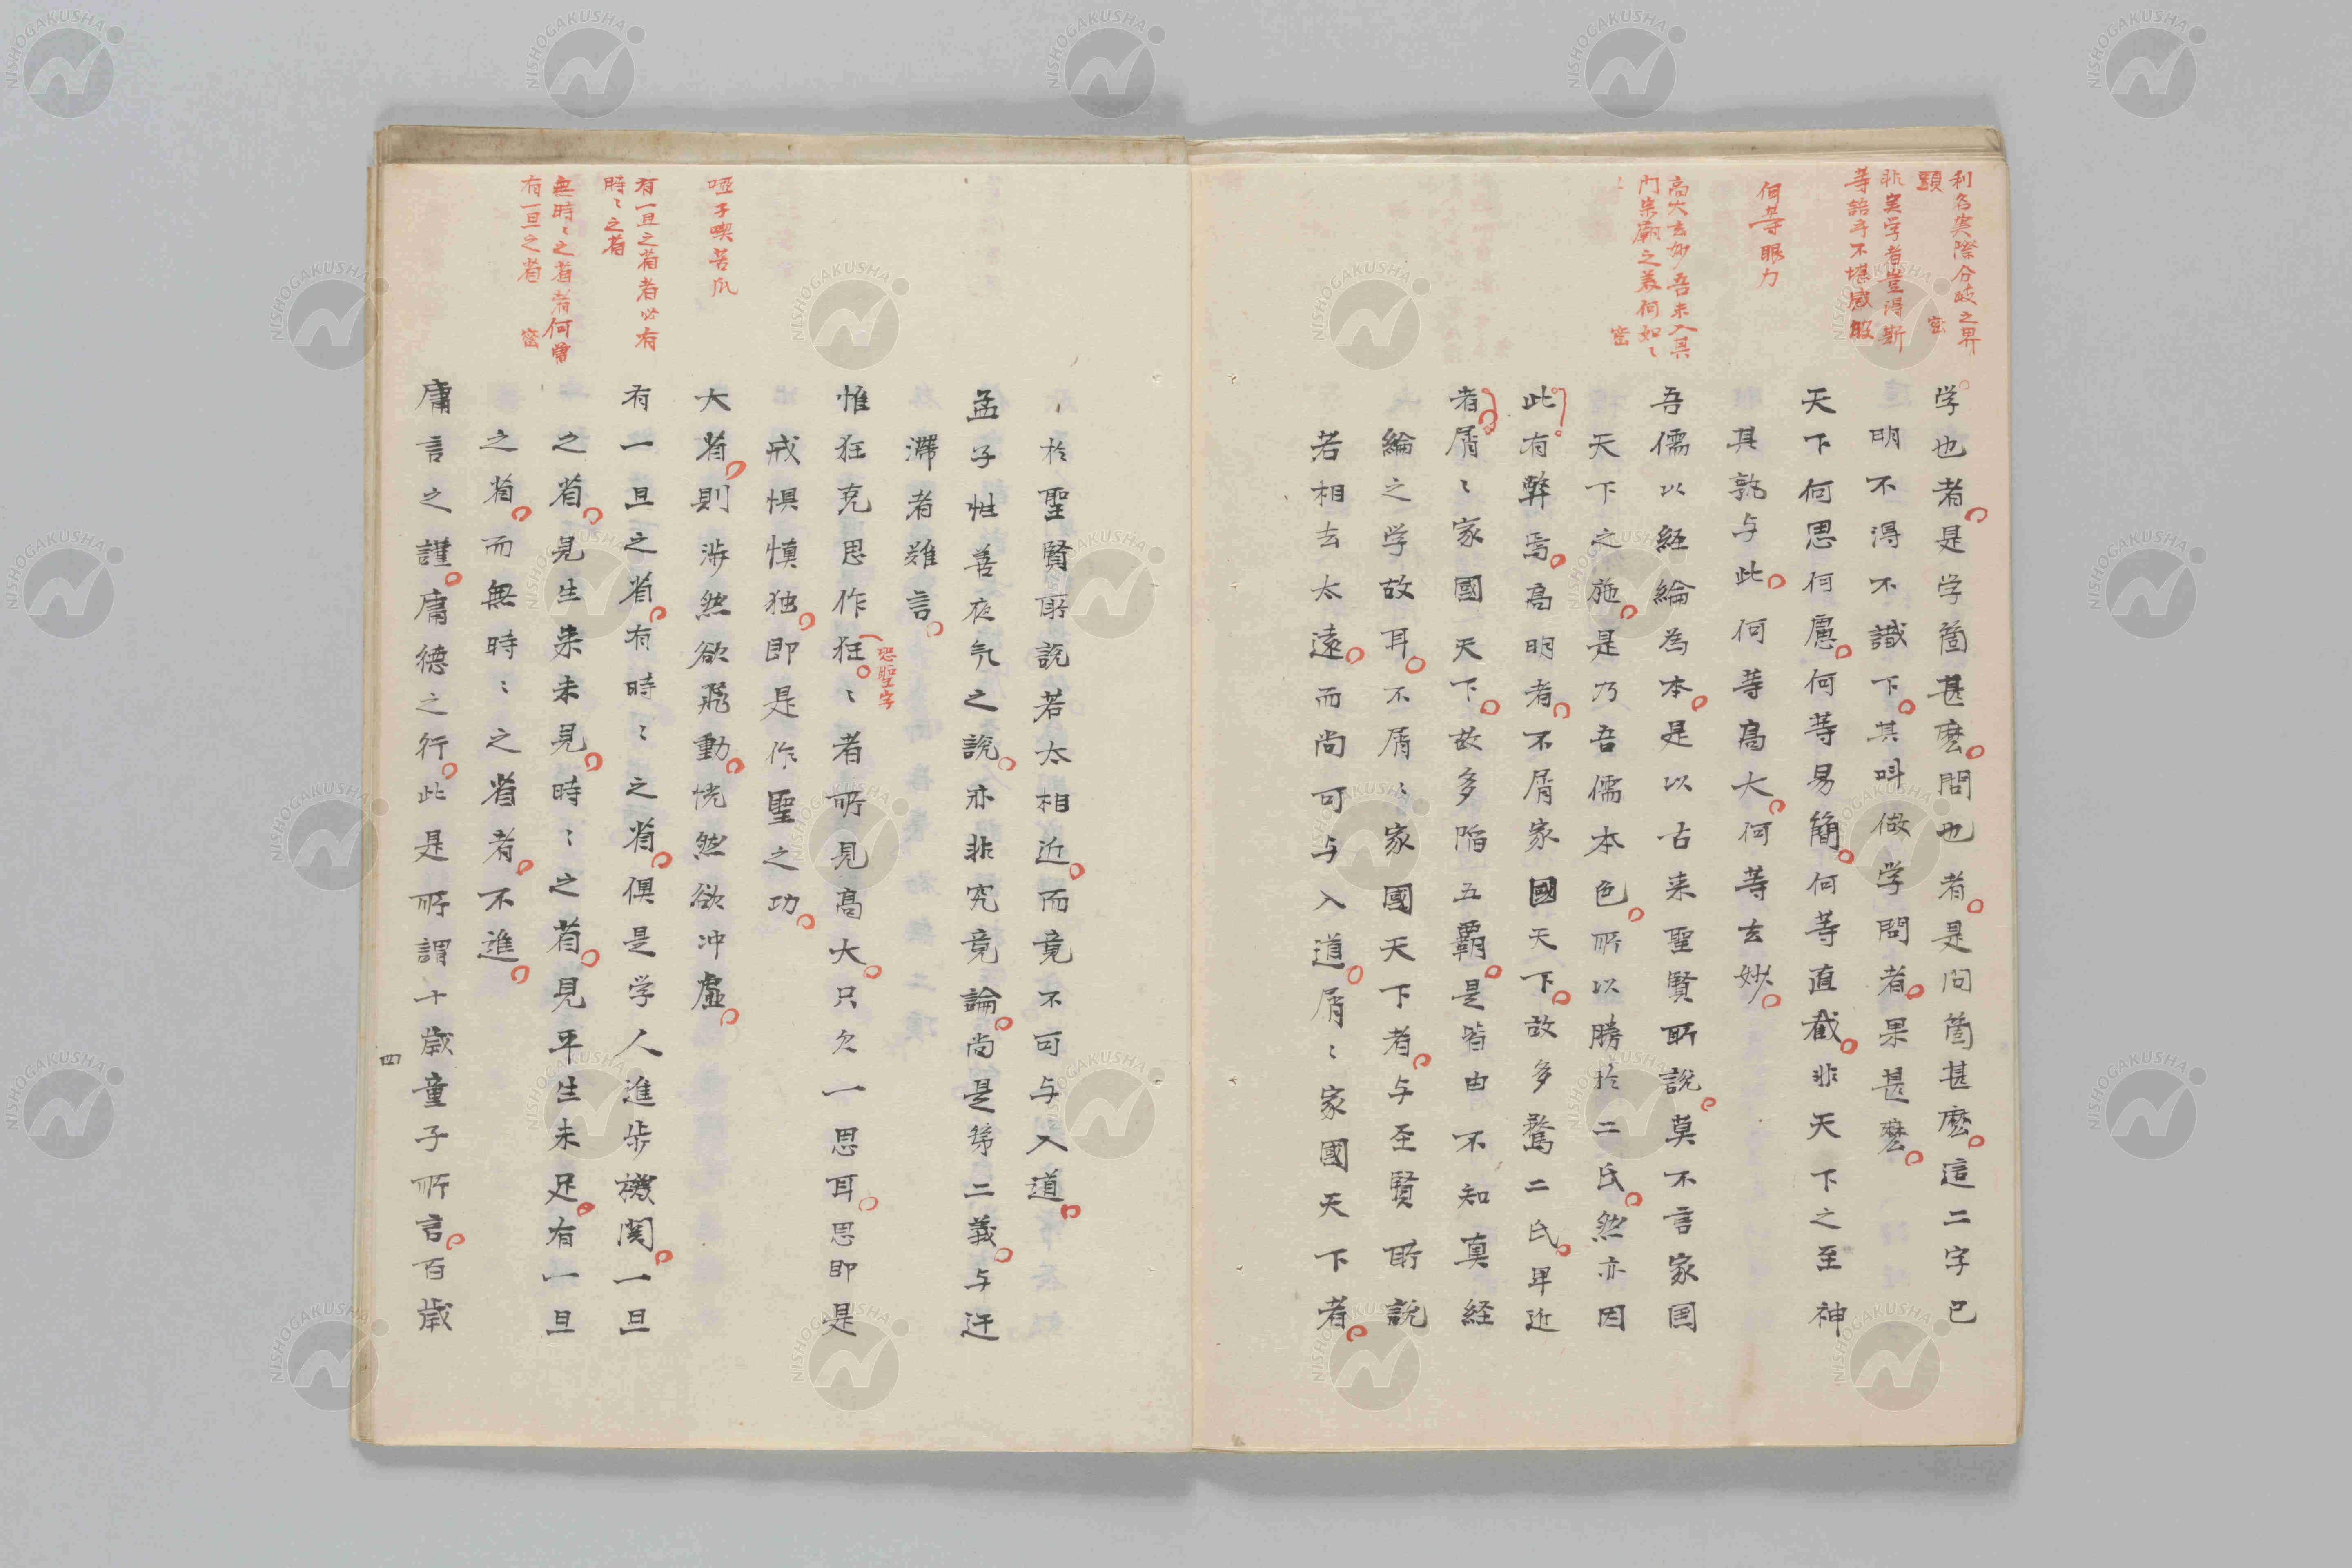 利名実際分岐之界
顕　密
非実学者豈得斯
等語乎不堪感服
何等眼力
高大玄妙吾未入其
門宗廟之美何如〻
密
学也者是学箇甚麽問也者是問箇甚麽這二字已
明不得不識下其叫做学問者果甚麽
天下何思何慮何等易簡何等直截非天下之至神
其孰与此何等高大何等玄妙
吾儒以経綸為本是以古来聖賢所説莫不言家国
天下之施是乃吾儒本色所以勝於二氏然亦因
此有弊焉高明者不屑家國天下故多騖二氏卑近
者屑〻家國天下故多陥五覇是皆由不知真経
綸之学故耳不屑〻家國天下者与聖賢所説
若相去太遠而尚可与入道屑〻家國天下者
哑子喫苦瓜
有一旦之省者必有
時〻之省
無時〻之省者何曽
有一旦之省　密
於聖賢所説若太相近而竟不可与入道
孟子性善夜气之説亦非究竟論尚是第二義与迂
滞者難言
惟狂克思作狂〻者所見高大只欠一思耳思即是
恐聖字
戒惧慎独即是作聖之功
大省則渉然欲飛動恍然欲冲虚
有一旦之省有時〻之省倶是学人進歩機関一旦
之省見生来未見時〻之省見平生未足有一旦
之省而無時〻之省者不進
庸言之謹庸徳之行此是所謂十歳童子所言百歳
四
NISHOGAKUSHA